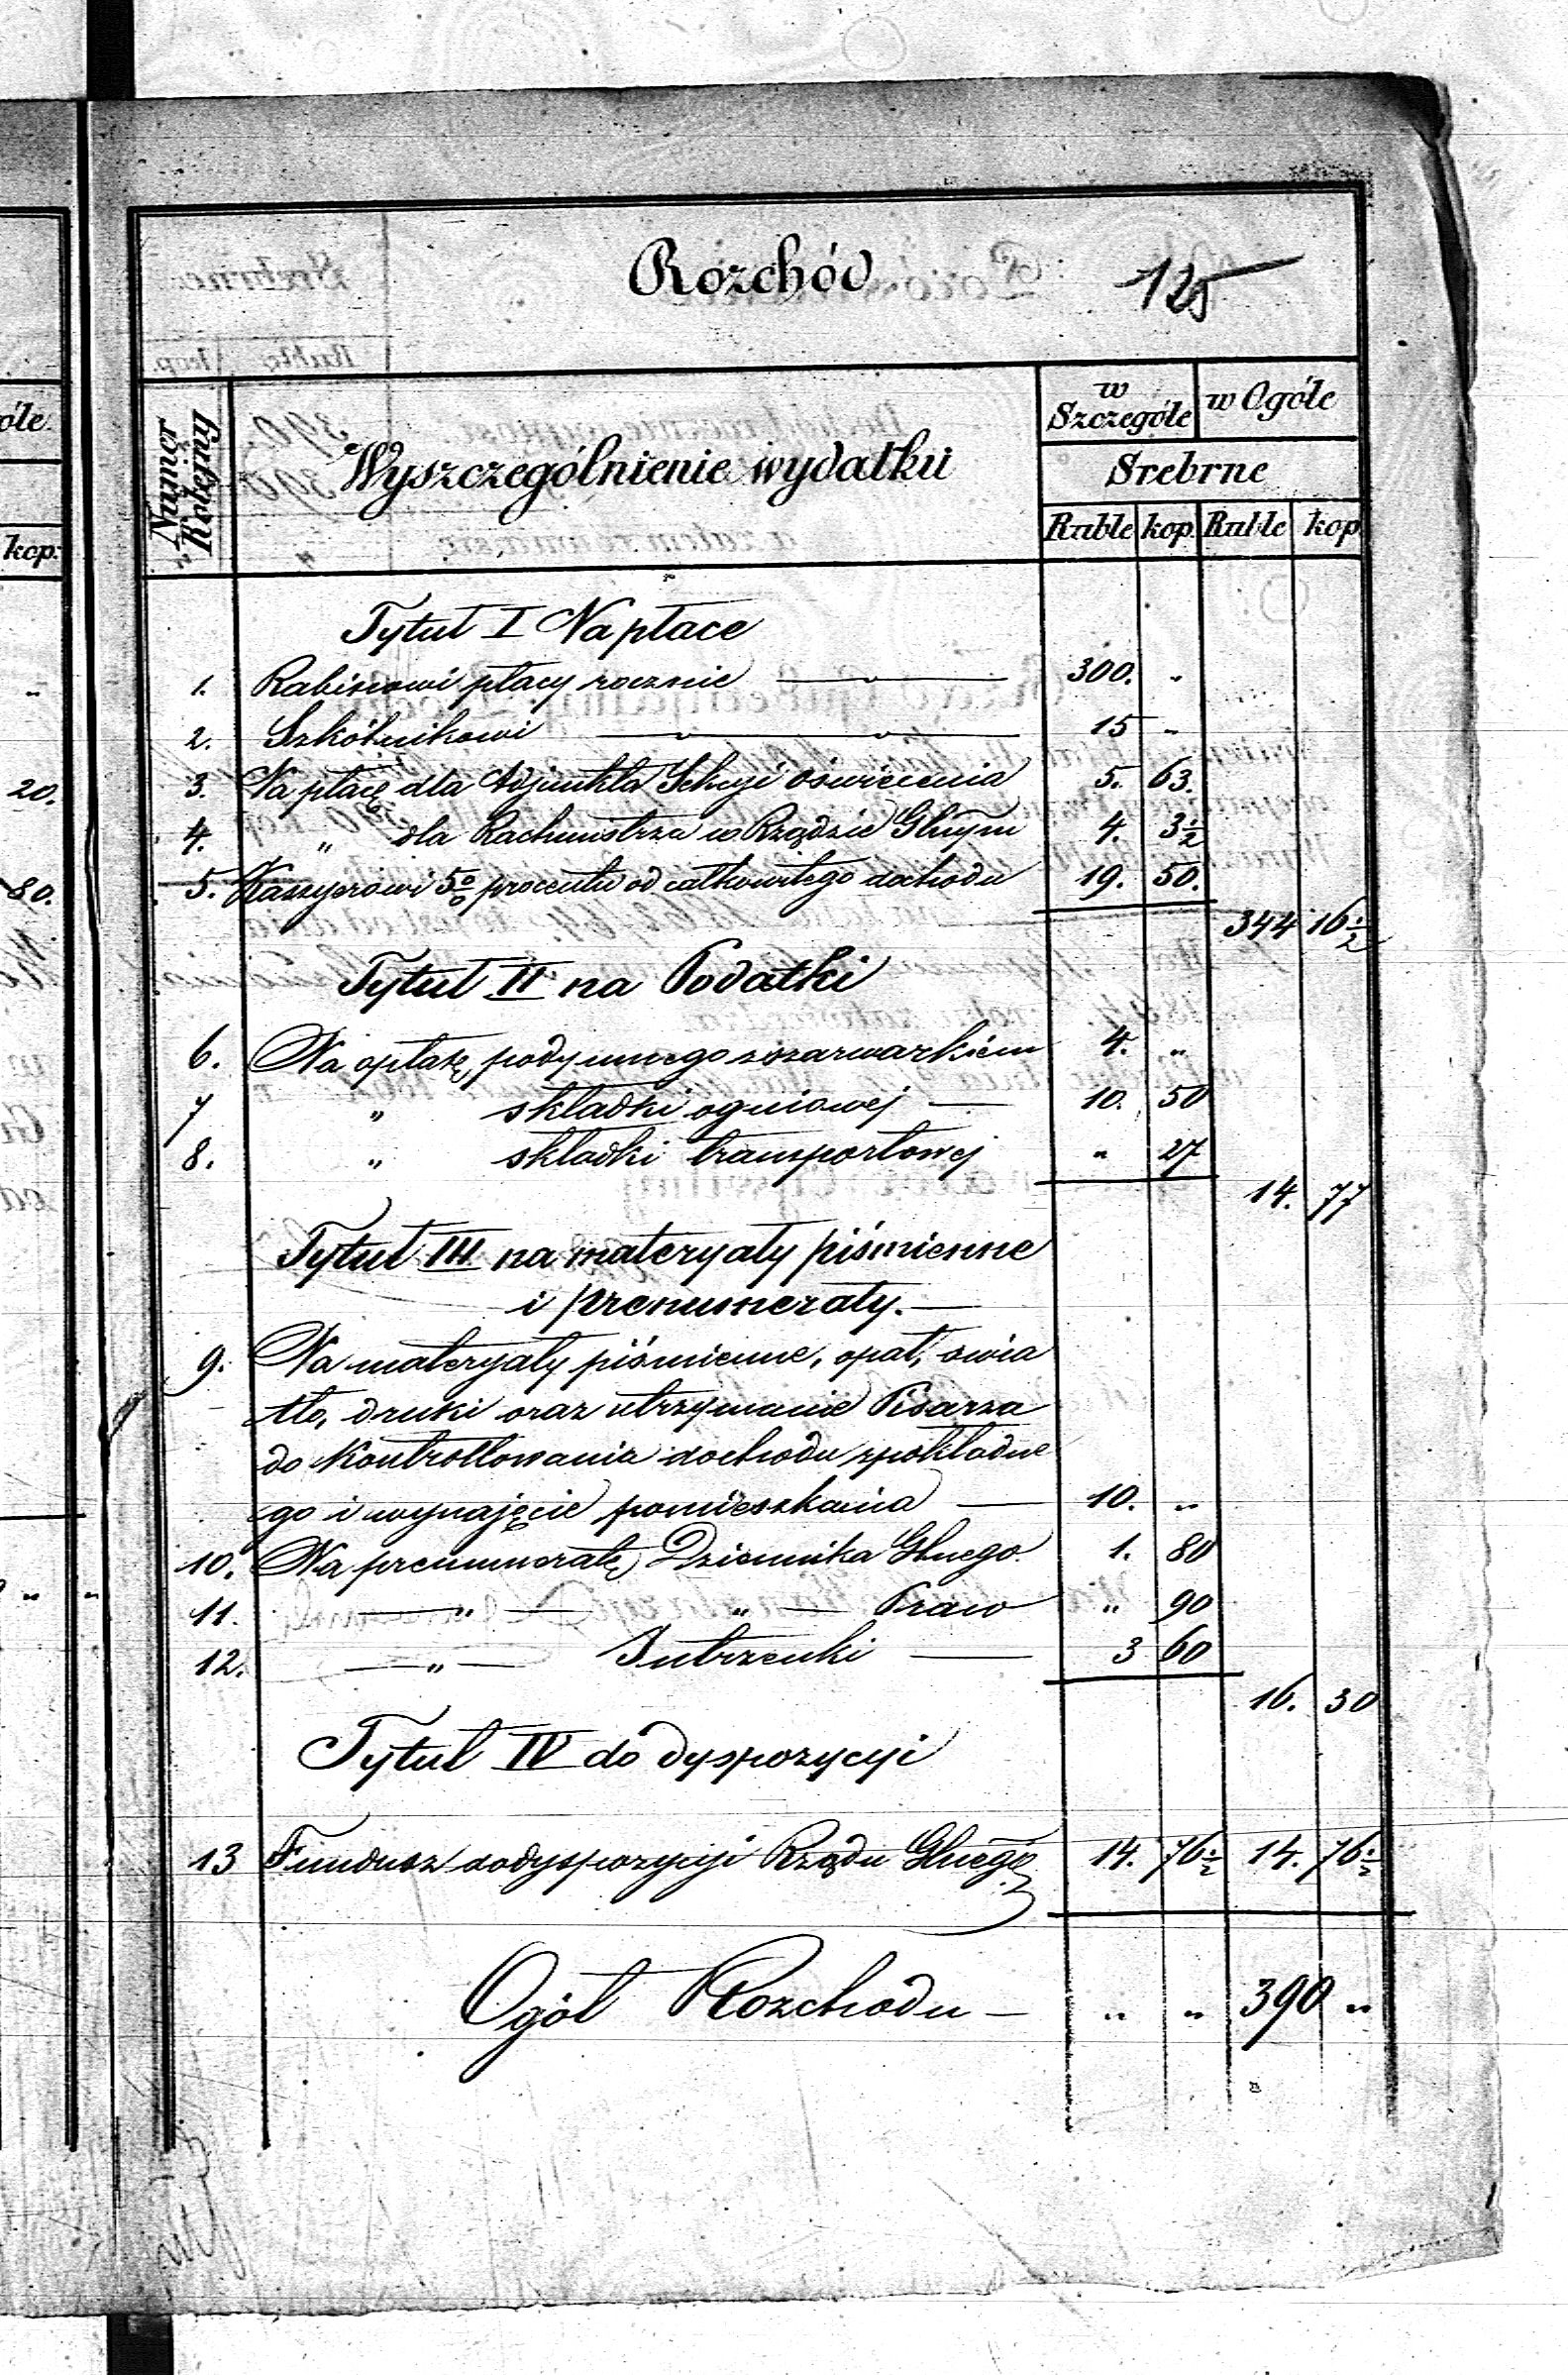 Rozchód 125
Numer Kolejny
Wyszczególnienie wydatku
w Szczególe
w Ogóle
Srebrne
Ruble kop. Ruble kop
óle
kop:
20.
80.
Tytuł I Na płace
1. Rabinowi płacy rocznie — " — 300. "
2. Szkólnikowi — " — " — 15 "
3. Na płacę dla Adjunkta Sekcyi Oświecenia 5. 63.
4. " dla Rachmistrza w Rządzie Gbnym 4. 3½
5. Kassyerowi 5% procentu od całkowitego dochodu 19. 50.
344 16½
Tytuł II na Podatki
6. Na opłatę podymnego z szarwarkiem 4. "
7 " składki ogniowej — 10. 50
8. " składki transportowej " 27
14. 77
Tytuł III na materyały piśmienne
i prenumeraty. —
9. Na materyały piśmienne, opał, świa
tło, druki oraz utrzymanie Pisarza
do kontrollowania dochodu zpokładne
go i wynajęcie pomieszkania — 10. "
10. Na prenumeratę Dziennika Gbnego 1. 80
11. — " — " — Praw " 90
12. — " — Jutrzenki — 3 60
16. 30
Tytuł IV do dyspozycyi
13 Fundusz do dyspozycyi Rządu Gbnego 14. 76½ 14. 76½
Ogół Rozchodu — " " 390 "